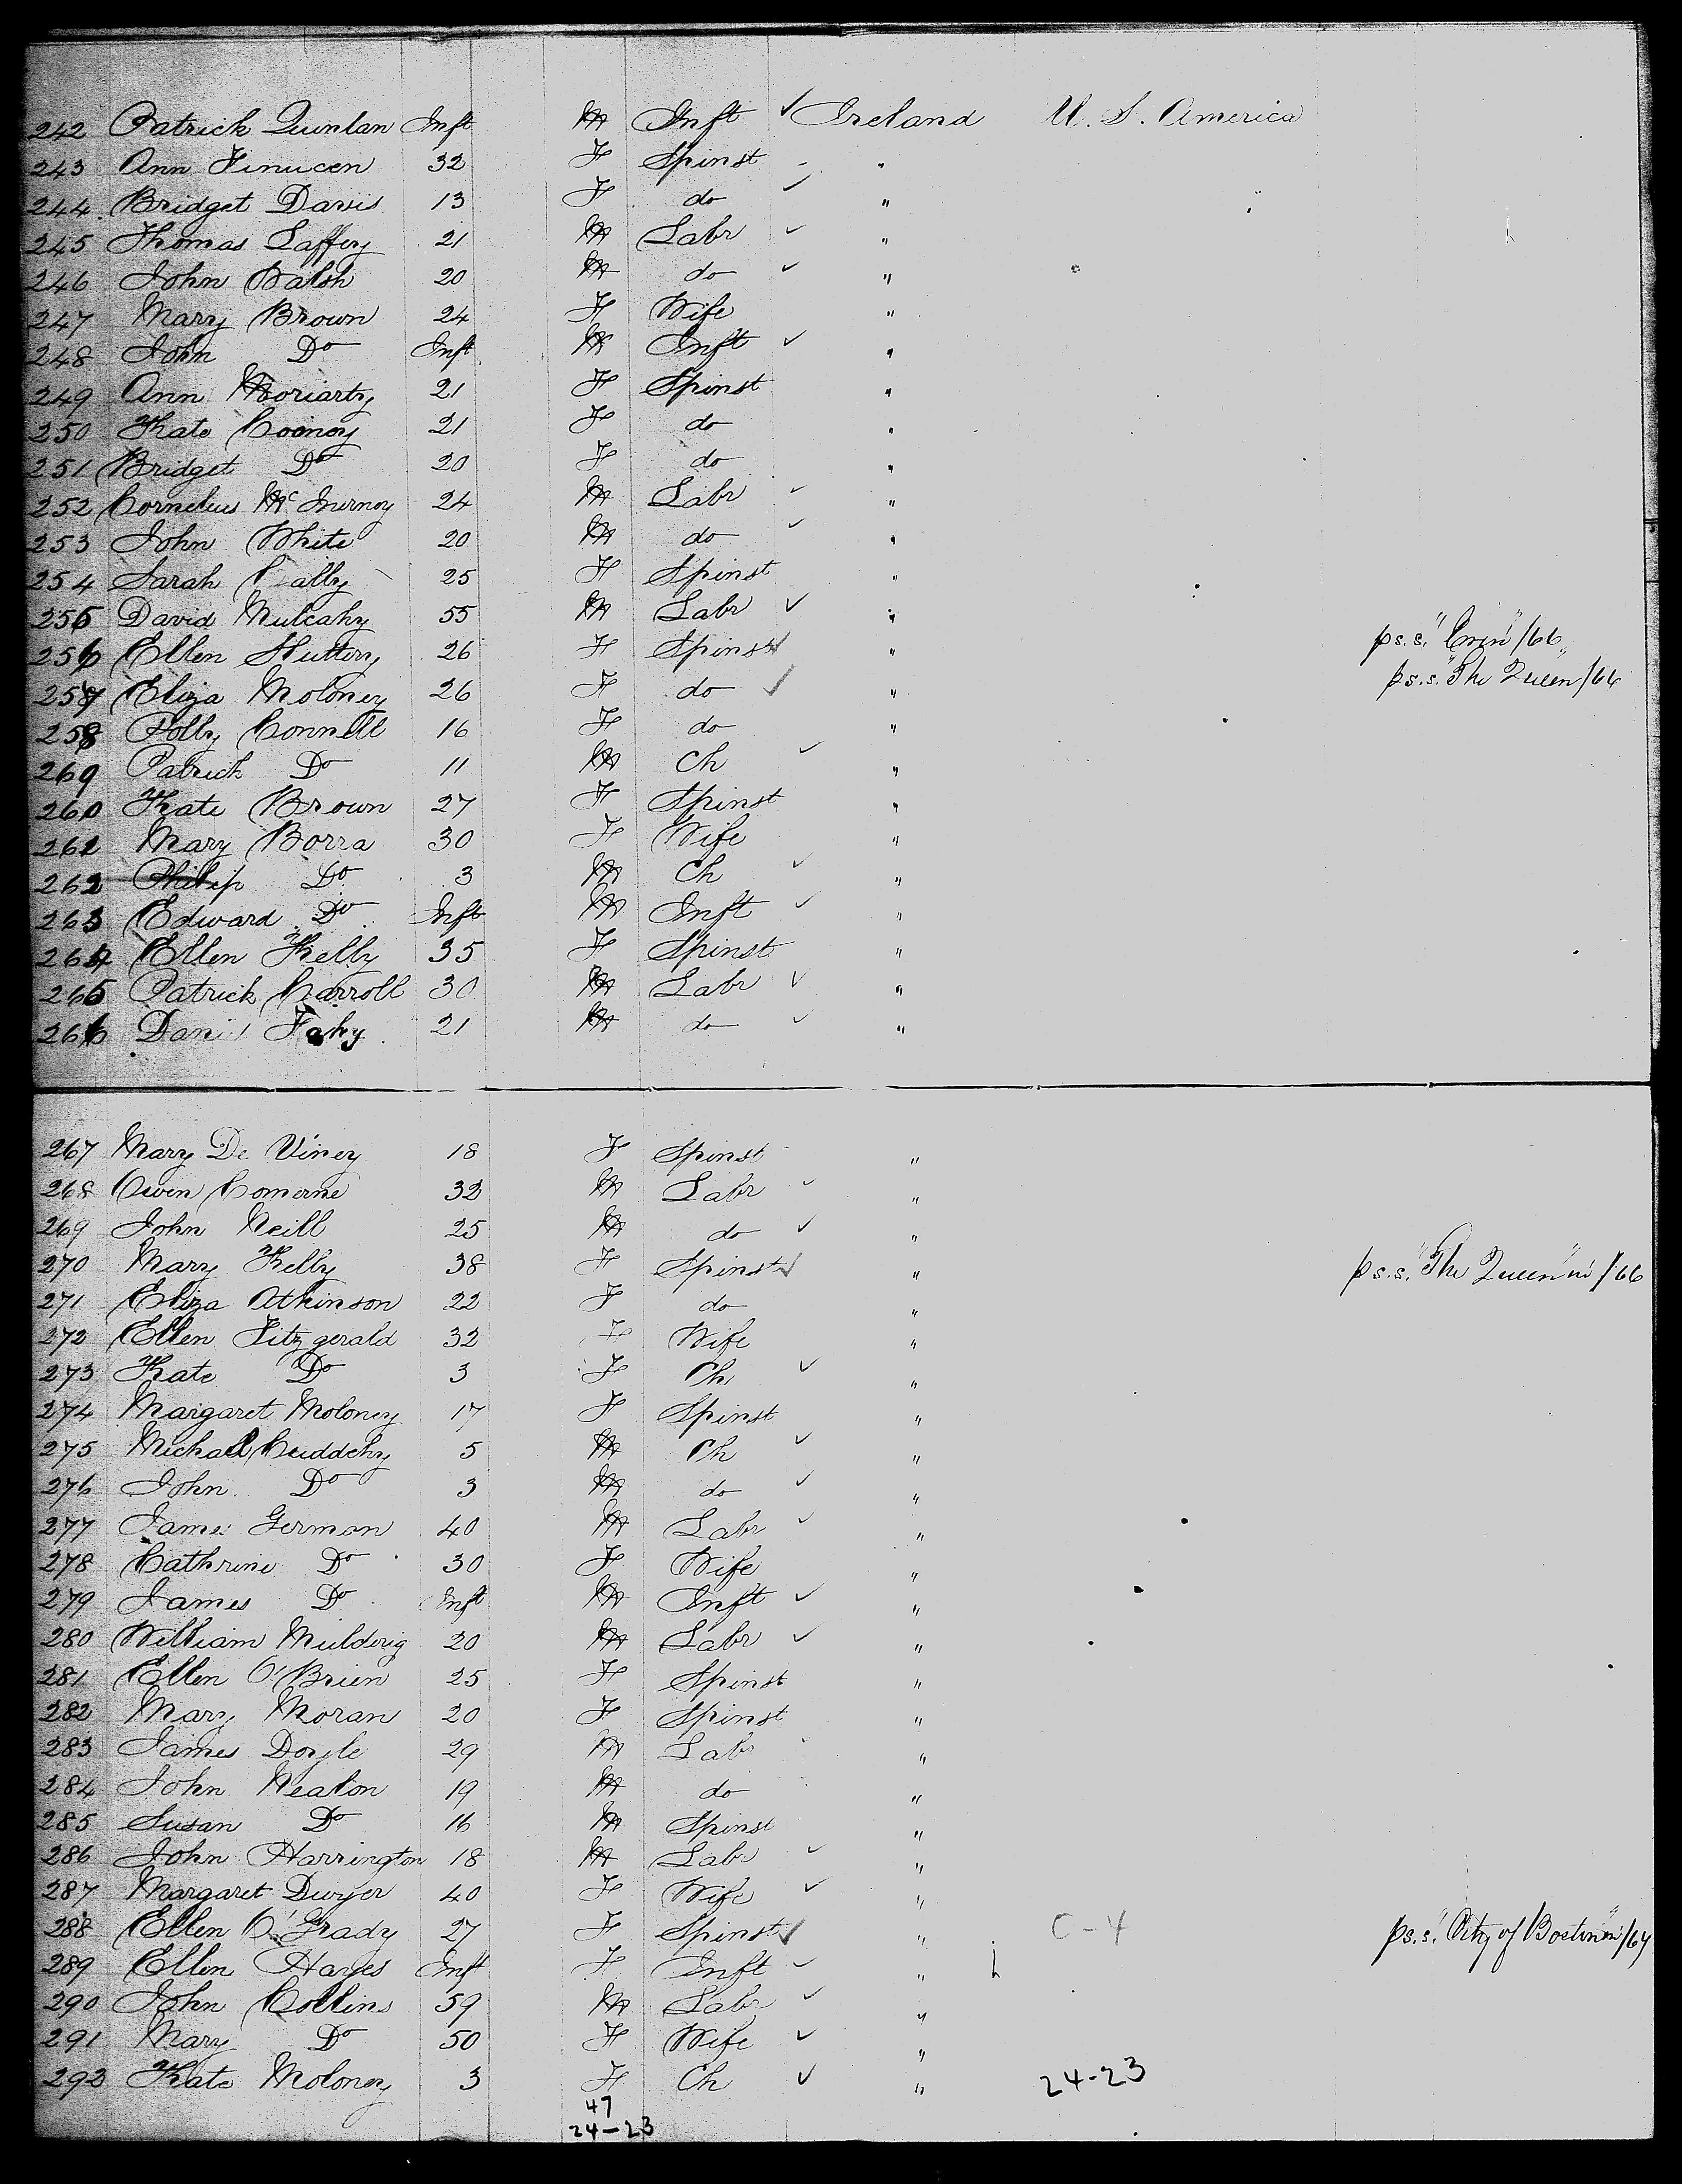 242 Patrick Quinlan Inft M Inft ✓ Ireland U. S. America
243 Ann Finucen 32 F Spinst "
244 Bridget Davis 13 F do ✓ "
245 Thomas Laffery 21 M Labr ✓ "
246 John Balsh 20 M do ✓ "
247 Mary Brown 24 F Wife "
248 John Do Inft M Inft ✓ "
249 Ann Moriarty 21 F Spinst "
250 Kate Cooney 21 F do "
251 Bridget Do 20 F do "
252 Cornelius McInerney 24 M Labr ✓ "
253 John White 20 M do ✓ "
254 Sarah 25 F Spinst "
255 David Mulcahy 55 M Labr ✓ "
256 Ellen Sluttery 26 F Spinst ✓ " p s.s. "Erin" /66
257 Eliza Moloney 26 F do ✓ " p s.s. "The Queen" /66
258 Polly Connell 16 F do "
269 Patrick Do 11 M Ch ✓ "
260 Kate Brown 27 F Spinst "
261 Mary Borra 30 F Wife "
262 Philip Do 3 M Ch ✓ "
263 Edward Do Inft M Inft ✓ "
264 Ellen Kelly 35 F Spinst "
265 Patrick Carroll 30 M Labr ✓ "
266 Fahy 21 M do ✓ "
267 Mary De Viney 18 F Spinst "
268 Owen Comerne 32 M Labr ✓ "
269 John Neill 25 M do ✓ "
270 Mary Kelly 38 F Spinst ✓ " p s.s. "The Queen" in /66
271 Eliza Atkinson 22 F do "
272 Ellen Fitzgerald 32 F Wife "
273 Kate Do 3 F Ch ✓ "
274 Margaret Moloney 17 F Spinst "
275 Michael Cuddehy 5 M Ch ✓ "
276 John Do 3 M do ✓ "
277 James German 40 M Labr ✓ "
278 Cathrine Do 30 F Wife "
279 James Do Inft M Inft ✓ "
280 William Mulderig 20 M Labr ✓ "
281 Ellen O'Brien 25 F Spinst "
282 Mary Moran 20 F Spinst "
283 James Doyle 29 M Labr "
284 John Neaton 19 M do "
285 Susan Do 16 M Spinst "
286 John Harrington 18 M Labr ✓ "
287 Margaret Dwyer 40 F Wife ✓ "
288 Ellen O'Grady 27 F Spinst ✓ " C-4 p s.s. "City of Boston" in /67
289 Ellen Hayes Inft F Inft ✓ "
290 John Collins 59 M Labr ✓ "
291 Mary Do 50 F Wife ✓ "
292 Kate Moloney 3 F Ch ✓ " 24-23
47
24-23